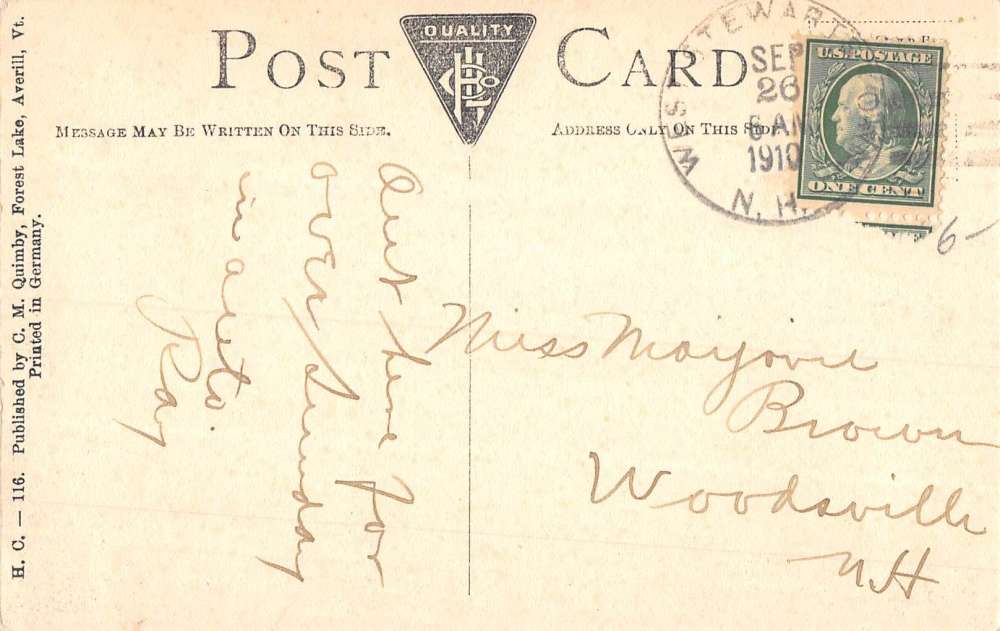 POST CARD
QUALITY
HPLCo
MESSAGE MAY BE WRITTEN ON THIS SIDE.
ADDRESS ONLY ON THIS SIDE
H. C. — 116. Published by C. M. Quimby, Forest Lake, Averill, Vt.
Printed in Germany.
WEST STEWARTSTOWN
SEP
26
6 AM
1910
N.H.
U.S. POSTAGE
ONE CENT
6-
Out here for
over Sunday
in auto.
Ray
Miss Marjorie
Brown
Woodsville
NH